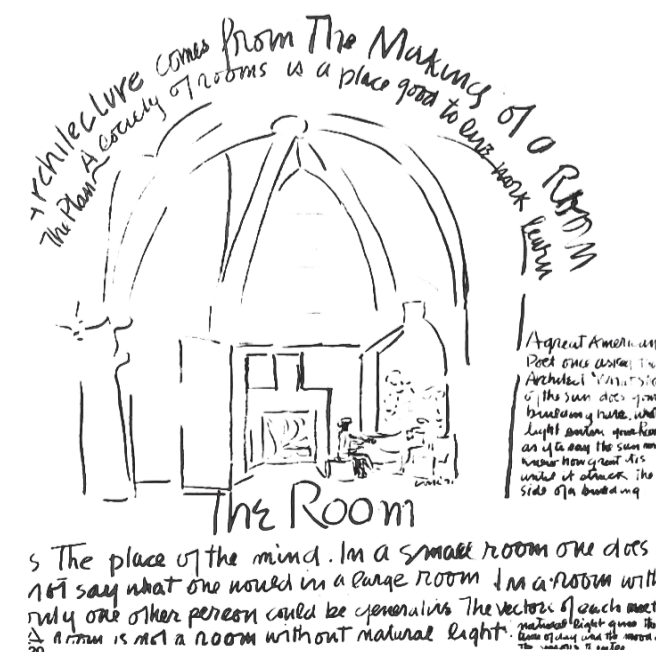 Architecture comes from The Making of a Room
The Plan A society of rooms is a place good to live work learn
A great American
Poet once asked the
Architect 'What slice
of the sun does your
building have. What
light enters your Room
as if to say the sun never
knew how great it is
until it struck the
side of a building
The Room
s The place of the mind. In a small room one does
not say what one would in a large room In a room with
only one other person could be generative The vectors of each meet
A Room is not a room without natural light.
natural light gives the
time of day and the mood